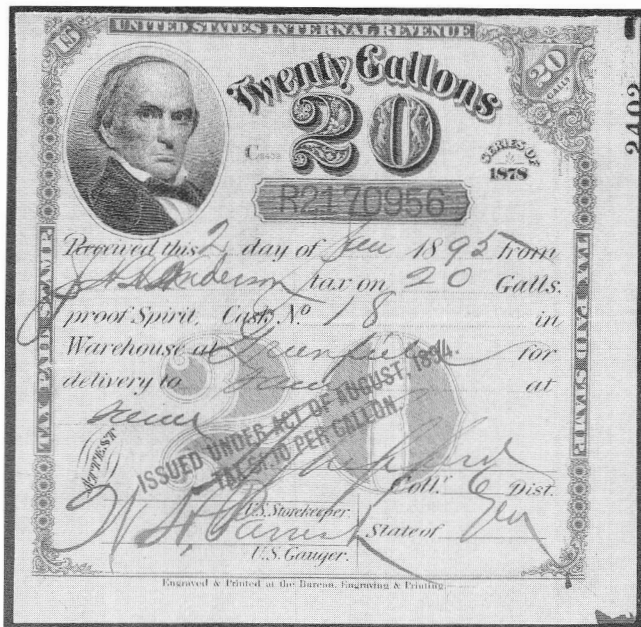 UNITED STATES INTERNAL REVENUE
Twenty Gallons
20
20
GALLS
SERIES OF
1878
R2170956
2402
Received this 2 day of Jan 1895 from
J. H. Anderson tax on 20 Galls.
proof Spirit, Cask No 18 in
Warehouse at Greenfield for
delivery to same at
same
20
TAX PAID STAMP
ATTEST
ISSUED UNDER ACT OF AUGUST, 1894.
TAX $1.10 PER GALLON.
Coll.r 6 Dist.
U.S. Storekeeper
State of
U.S. Gauger.
Engraved & Printed at the Bureau, Engraving & Printing.